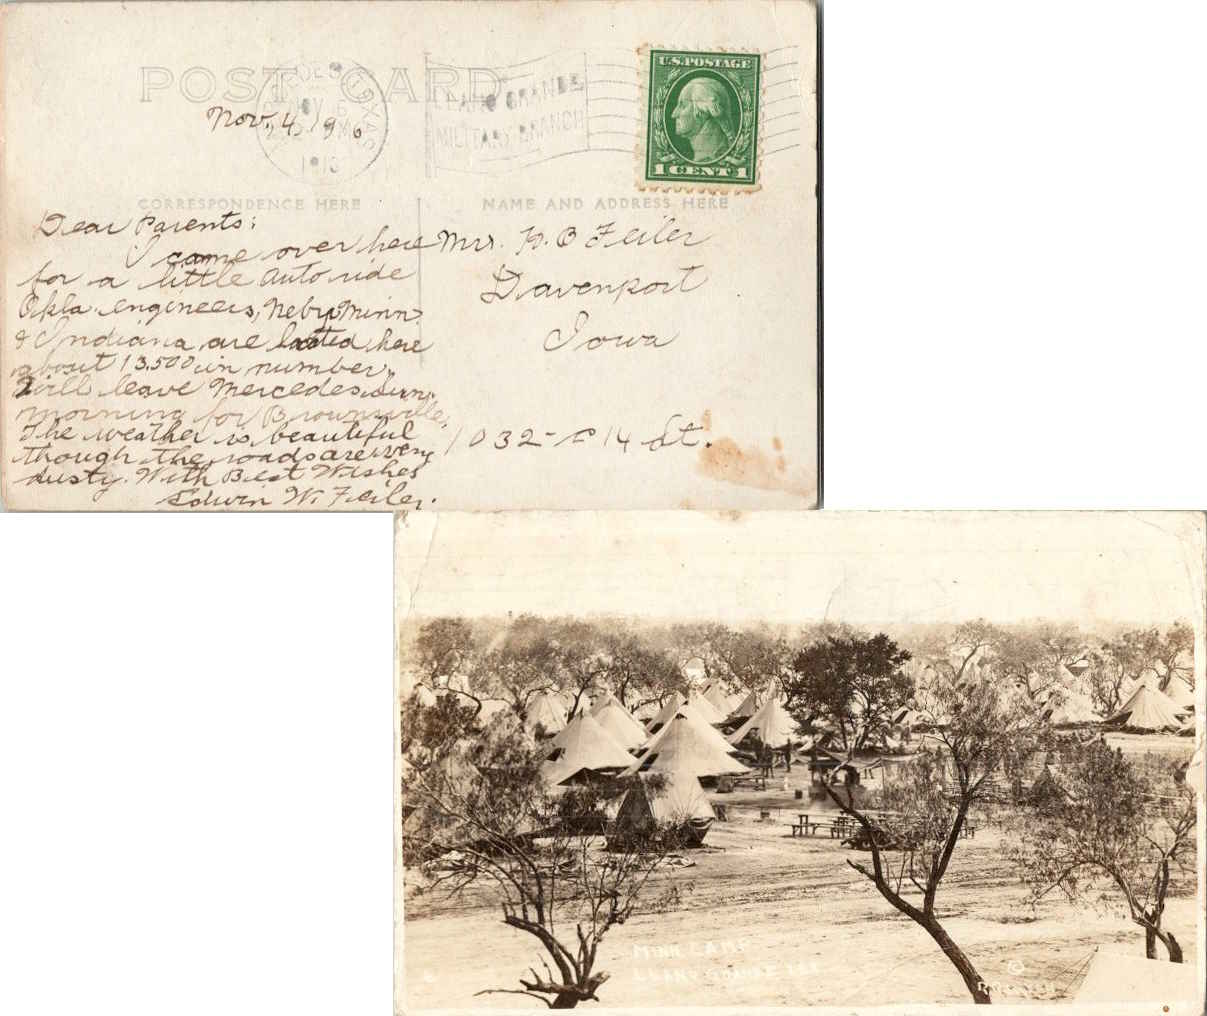 POST CARD
MERCEDES, TEXAS
NOV 6
1916
LLANO GRANDE
MILITARY BRANCH
U.S. POSTAGE
1 CENT 1
Nov. 4, 1916
CORRESPONDENCE HERE
NAME AND ADDRESS HERE
Dear Parents:
I came over here
for a little auto ride
Okla. engineers, Neby Minn
& Indiana are located here
about 13.500 in number.
Will leave Mercedes Sun.
morning for Brownsville.
The weather is beautiful
though the roads are very
dusty. With Best Wishes
Edwin W. Feiler.
Mrs. H. B Feiler
Davenport
Iowa
1032- 14 St.
MINN. CAMP
LLANO GRANDE TEX
©